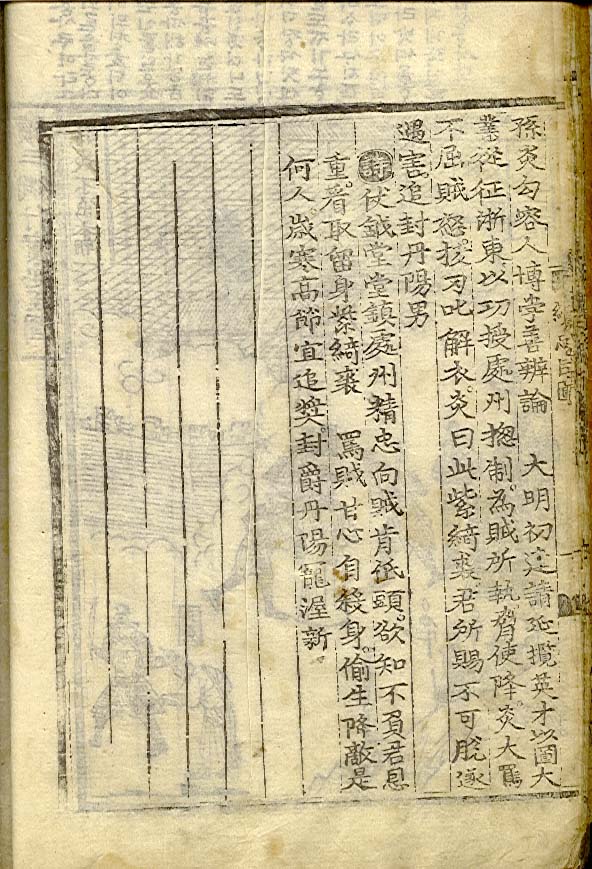 孫炎句容人博學善辨論 大明初定請延攬英才以圖大
業從征浙東以功授處州揔制為賊所執脅使降炎大罵
不屈賊怒拔刀叱解衣炎曰此紫綺裘君所賜不可脫遂
遇害追封丹陽男
詩仗鉞堂堂鎮處州精忠向賊肯低頭欲知不負君恩
重看取留身紫綺裘 罵賊甘心自殺身偷生降敵是
何人歲寒高節宜追奬封爵丹陽寵渥新